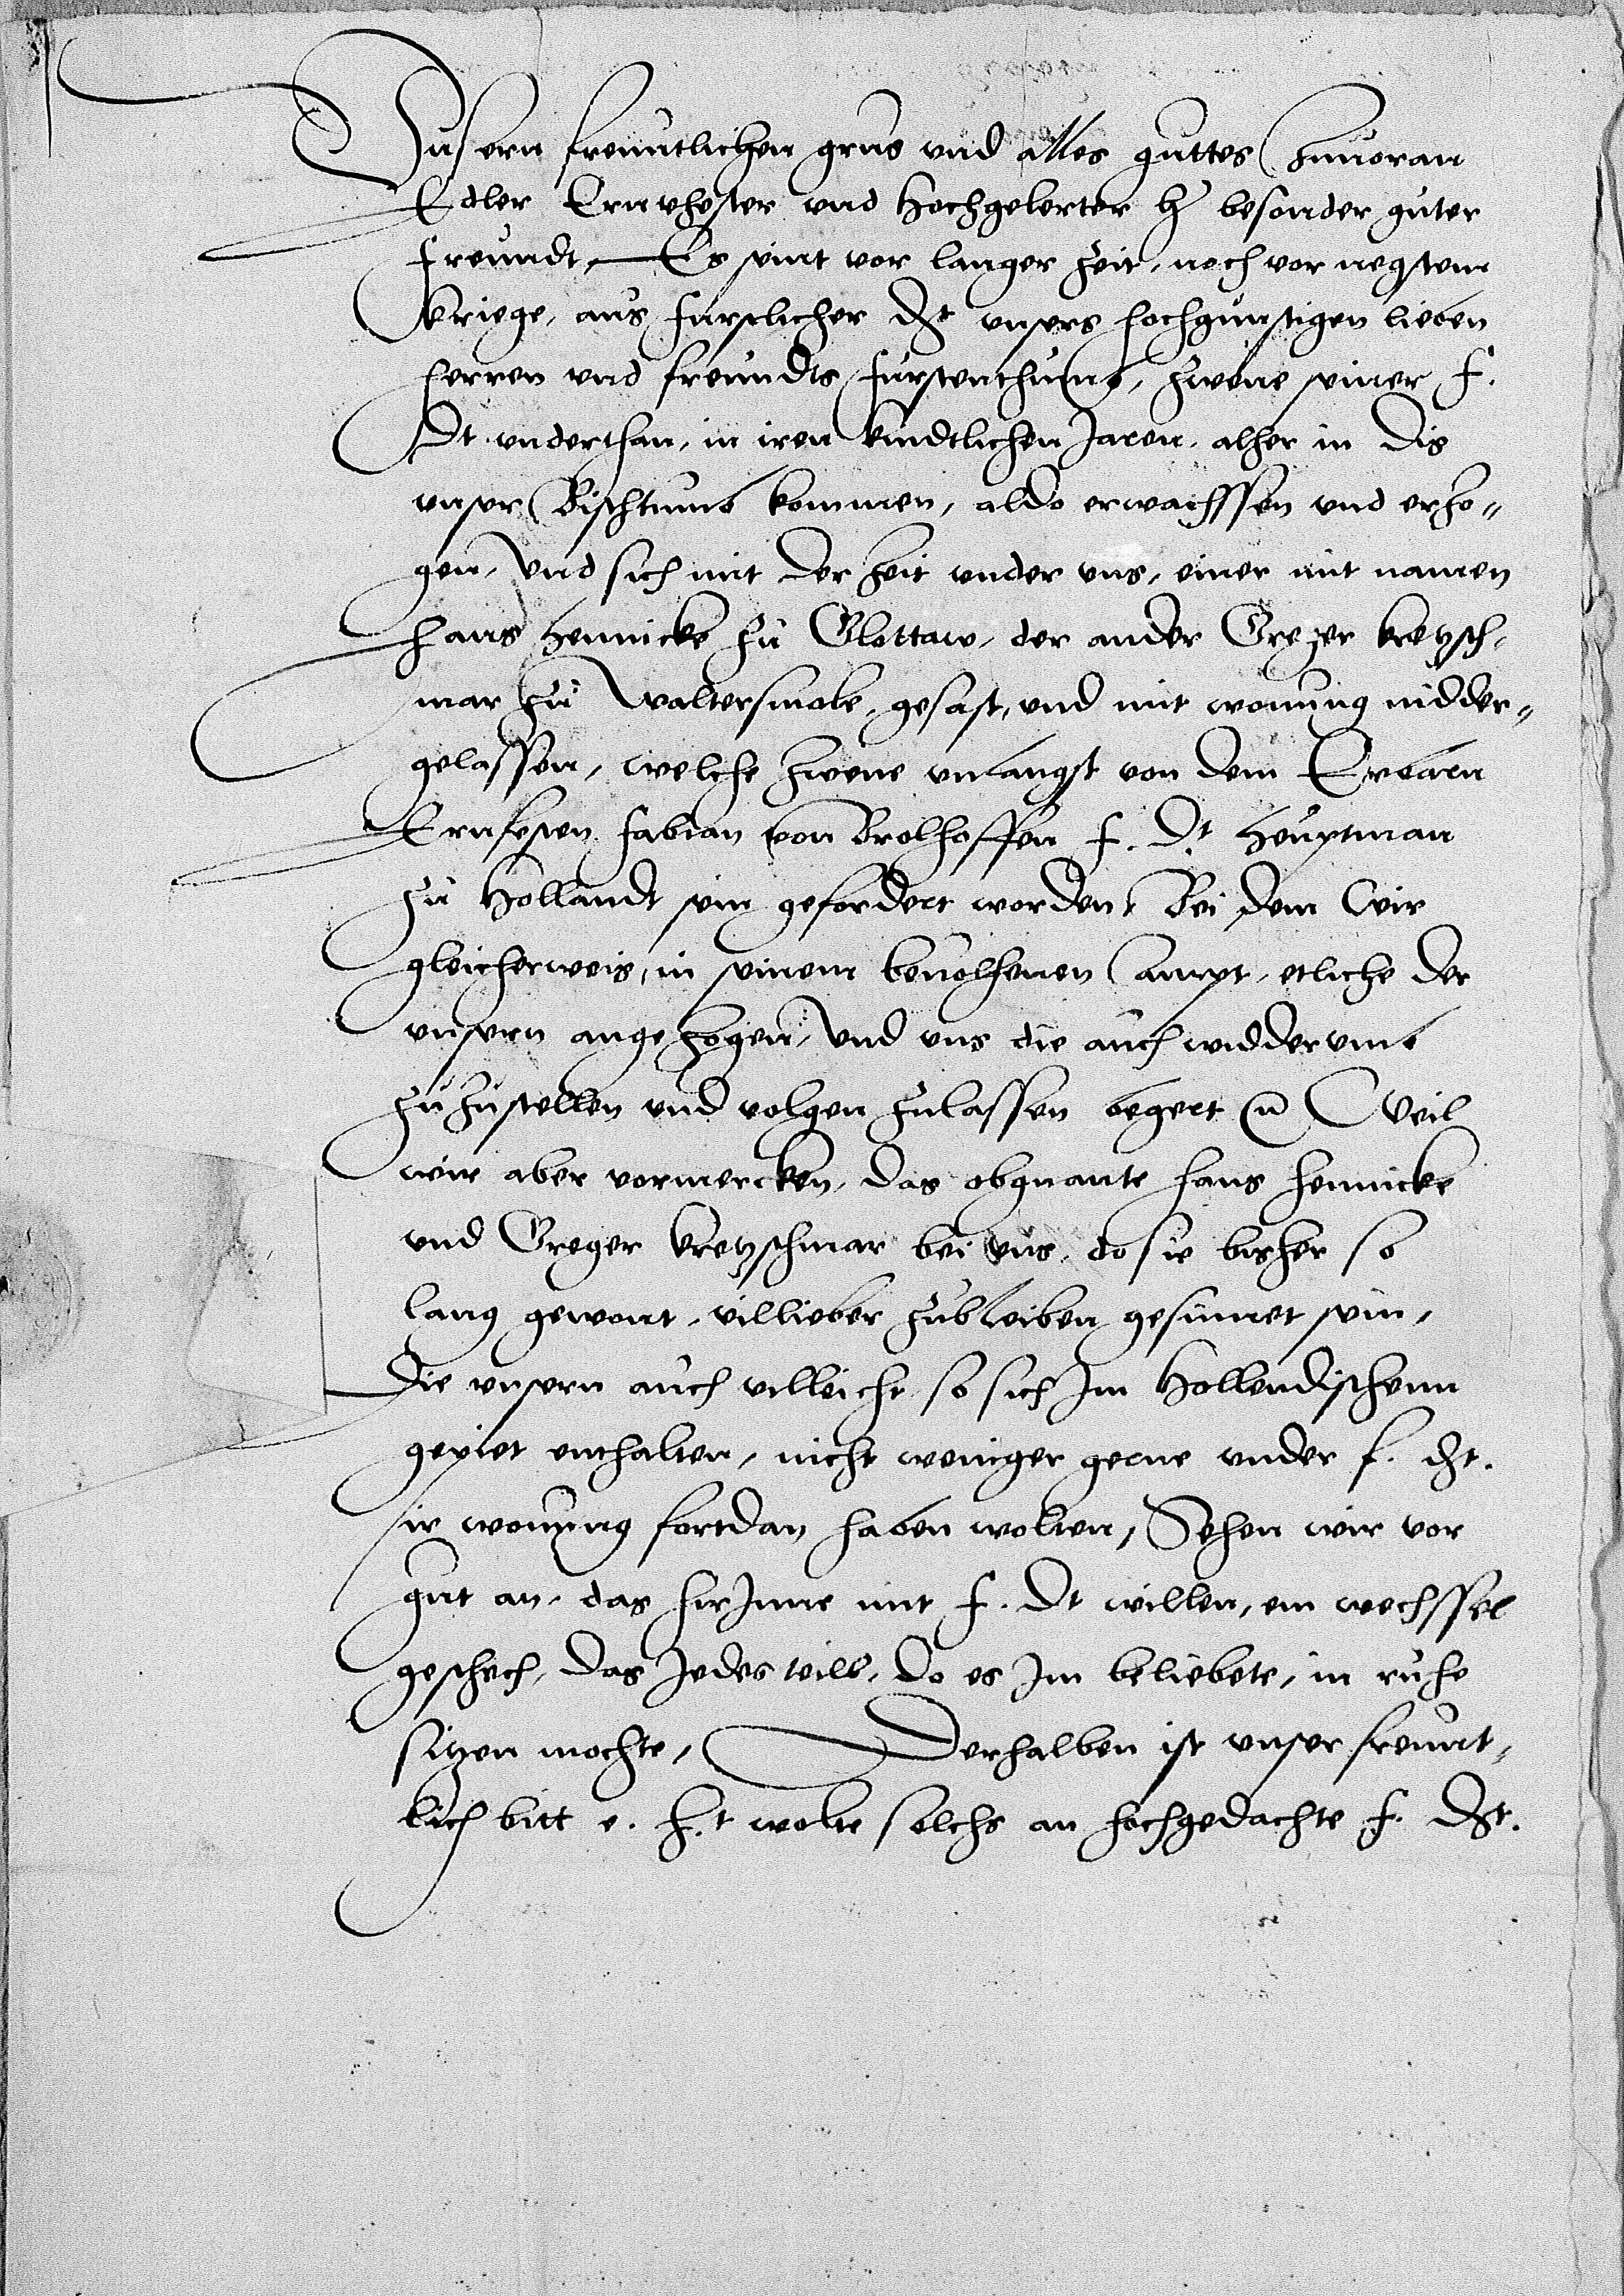 Vnsern freuntlichen grus vnd alles guttes zuuoran
Edler Ernvhester vnd Hochgelerter h besonder guter
freundt, Es seint vor langer zeit, noch vor negstem
kriege, aus furstlicher dt vnsers hochgunstigen lieben
herren vnd freundts furstenthumb, zwene seiner f.
Dt vnderthan, in iren kindtlichen Jaren, alher in dis
vnser Bischtumb kommen, aldo erwachssen vnd erzo„
gen, Vnd sich mit der zeit vnder vns, einer mit namen
Hans Hennicke zu Glottaw, der ander Greger kretzsch,
mar zu Waltersmole, gesast, vnd mit wonung nidder„
gelassen, welche zwene vnlangst von dem Erbarn
Ernfesten fabian von Brolhoffen f. Dt Heuptman
zu Hollandt sein gefordert worden, Bei dem Wir
gleicherweis, in seinem beuolhenen ampt, etliche der
vnsern angezogen, Vnd vns die auch widderumb
zuzustellen vnd volgen zulassen begert Weil
wir aber vormercken, das obgnante Hans Hennicke
vnd Greger kretzschmar bei vns, do sie bisher so
lang gewont, villieber zubleiben gesinnet sein,
Die vnsern auch villeicht so sich Im Hollendischenn
gepiet enthalten, nicht weniger gerne vnder f. dt.
ir wonung fortdan haben wolten, Sehen wir vor
gut an, das hirInne mit f. Dt willen, ein wechssel
geschech, das Jedes teill, do es Im beliebete, in ruhe
sitzen mochte, Derhalben ist vnser freunt„
lich bitt e. h.t wolte solchs an hochgedachte f. Dt.